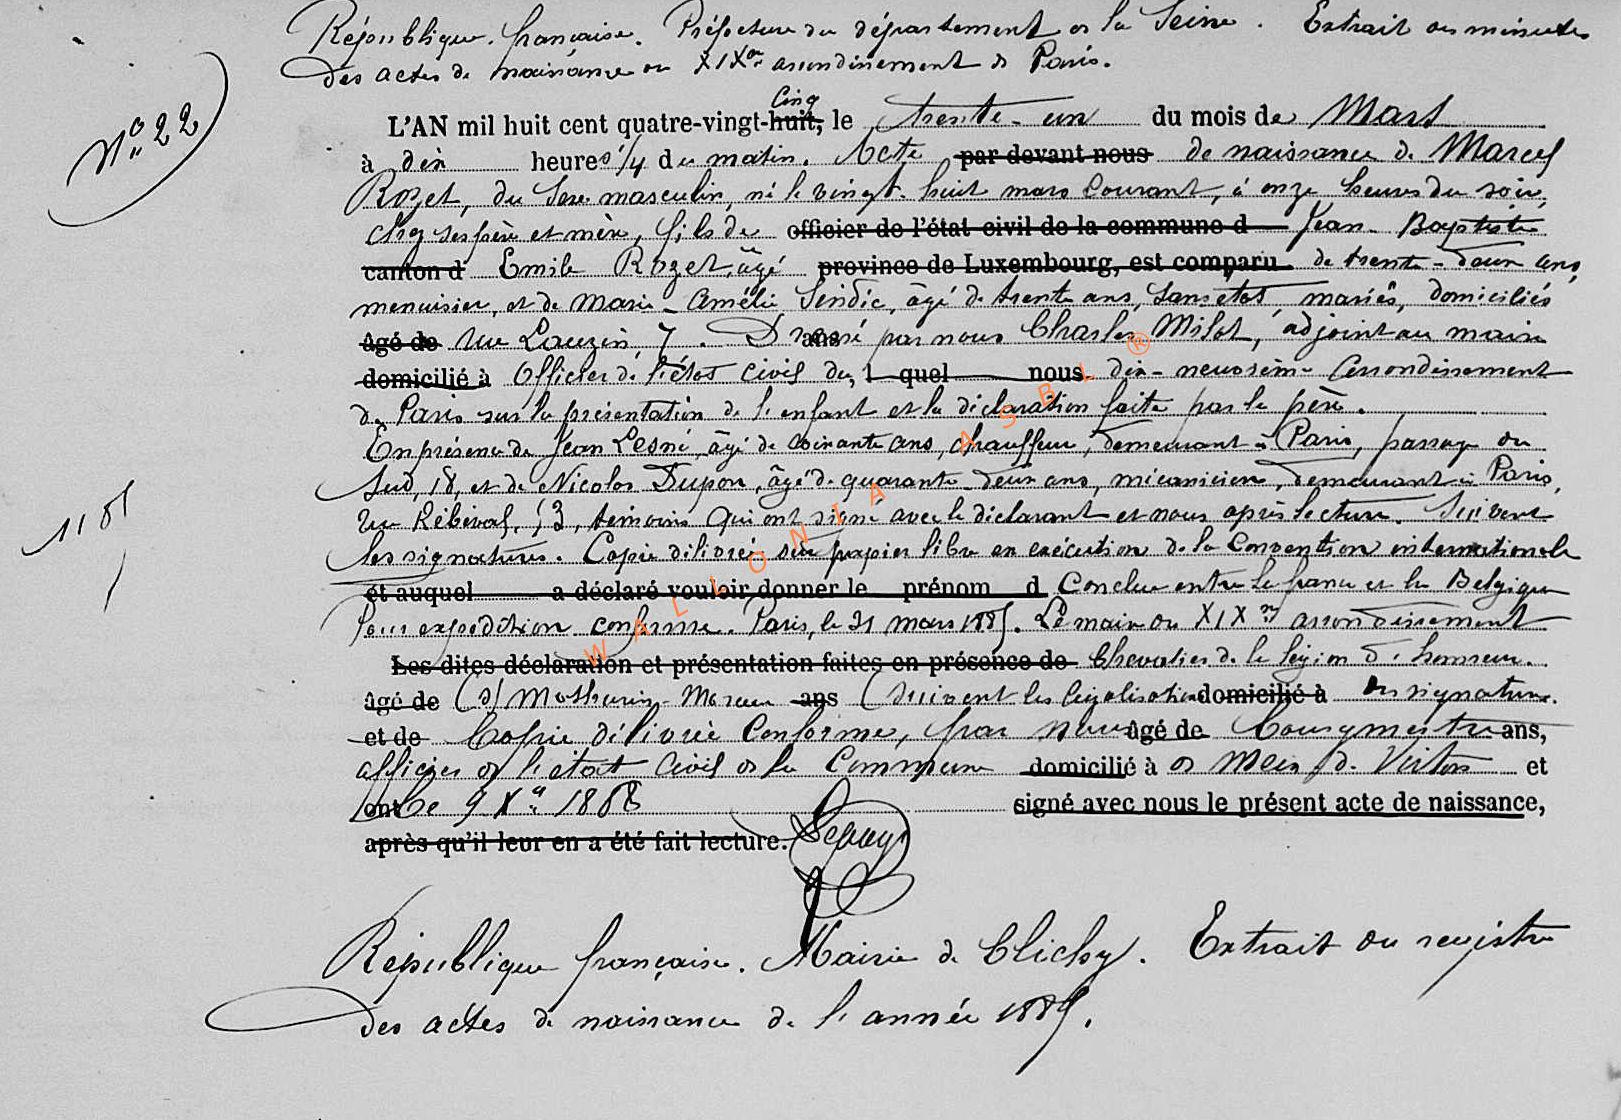 République française. Préfecture du département de la Seine. Extrait des minutes
des actes de naissance du XIXme arrondissement de Paris.
N° 22
Cinq
L'AN mil huit cent quatre-vingt-huit, le trente-un du mois de Mars
à dix heures 1/4 du matin. Acte par devant nous de naissance de Marcel
Rozet, du sexe masculin, né le vingt-huit mars courant, à onze heures du soir,
chez ses père et mère, fils de officier de l'état civil de la commune d Jean-Baptiste
canton d Emile Rozet, âgé province de Luxembourg, est comparu de trente-deux ans,
menuisier, et de Marie-Amélie Sindic, âgé de trente ans, sans état, mariés, domiciliés
âgé de rue Lauzin, 7. Dressé ans par nous Charles Milot, adjoint au maire
domicilié à Officier de l'état civil du l quel nous dix-neuvième arrondissement
de Paris sur la présentation de l'enfant et la déclaration faite par le père.
En présence de Jean Lesné, âgé de soixante ans, chauffeur, demeurant à Paris, passage du
Sud, 18, et de Nicolas Dupon, âgé de quarante-deux ans, mécanicien, demeurant à Paris,
rue Rébeval, 53, témoins qui ont signé avec le déclarant et nous après lecture. Suivent
les signatures. Copie délivrée sur papier libre en exécution de la Convention internationale
et auquel a déclaré vouloir donner le prénom d Conclue entre la france et la Belgique
Pour expédition conforme. Paris, le 31 mars 1885. Le maire du XIXme arrondissement
Les dites déclaration et présentation faites en présence de Chevalier de la légion d'honneur.
âgé de (s) Mathurin Moreau ans (Suivent les légalisations domicilié à des signatures.
et de Copie délivrée Conforme, par nous âgé de bourgmestre ans,
officier de l'état civil de la Commune domicilié à de Meix d. Virton et
ont Le 9 Xbre 1888 signé avec nous le présent acte de naissance,
après qu'il leur en a été fait lecture.
République française. Mairie de Clichy. Extrait du registre
des actes de naissance de l'année 1885.
WALLONIA ASBL ®